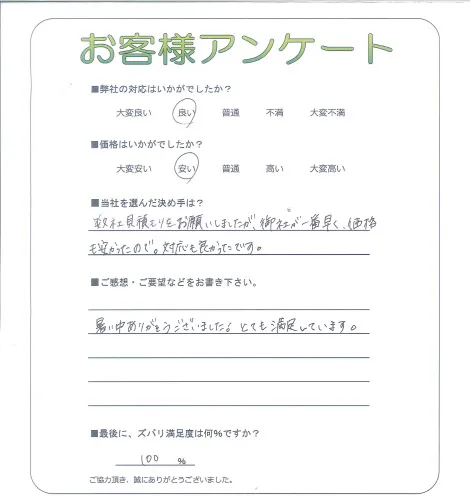 お客様アンケート
■弊社の対応はいかがでしたか？
大変良い 良い 普通 不満 大変不満
■価格はいかがでしたか？
大変安い 安い 普通 高い 大変高い
■当社を選んだ決め手は？
数社見積もりをお願いしましたが、御社が一番早く、価格
も安かったので。対応も良かったです。
■ご感想・ご要望などをお書き下さい。
暑い中ありがとうございました。とても満足しています。
■最後に、ズバリ満足度は何％ですか？
100 ％
ご協力頂き、誠にありがとうございました。